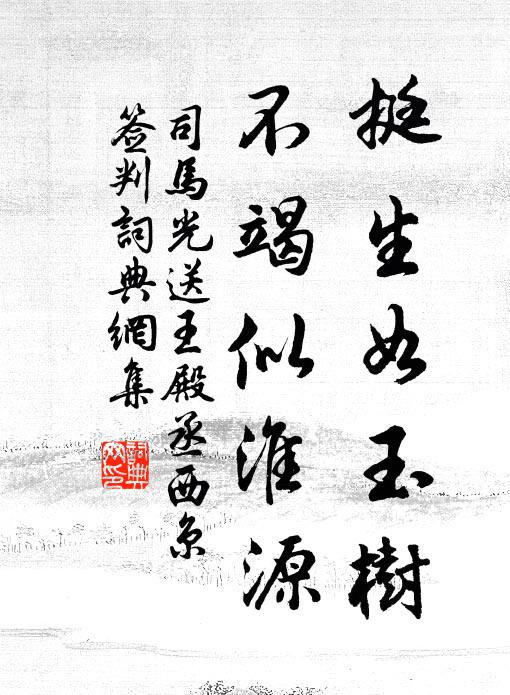 挺生如玉樹
不竭似淮源
司馬光送王殿丞西京
簽判詞典網集